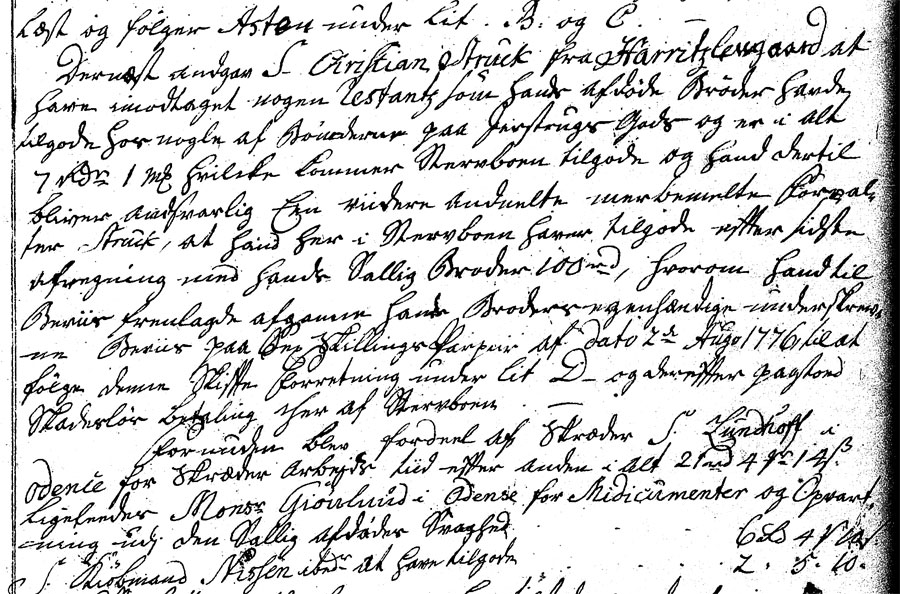 Læst og følger Acten under Lit. B. og C. —
Dernæst angav S. Christian Struck fra Harritzlevgaard at
have imodtaget nogen Restantz som hands afdøde Broder havde
tilgode hos nogle af Bønderne paa Jerstrups Gods og er i alt
7 Rdr 1 mk hvilcke kommer Stervboen tilgode og hand dertil
bliver andsvarlig Een viidere anmelte merbemelte Forval-
ter Struck, at hand her i Stervboen haver tilgode effter sidste
afregning med hands Sallig Broder 100 rd, hvorom hand til
Beviis fremlagde afgangne hands Broders egenhændige underskrev-
ne Beviis paa Sex Skillings Papiir af Dato 2d Augo 1776 til at
følge denne Skiffte Forretning under Lit D — og dereffter paastod
Skadesløs betaling her af Stervboen —
foruden blev fordret af Skræder S. Lundhoff i
Odense for Skræder Arbejde tiid effter anden i alt 21 rd 4 14 ß
Ligeleedes Monsr Grønlund i Odense for Midicamenter og Opvart-
-ning udj den Sallig afdødes Svaghed 6 4
S. Kiøbmand Nissen ibdm at have tilgode 2. 5. 10.